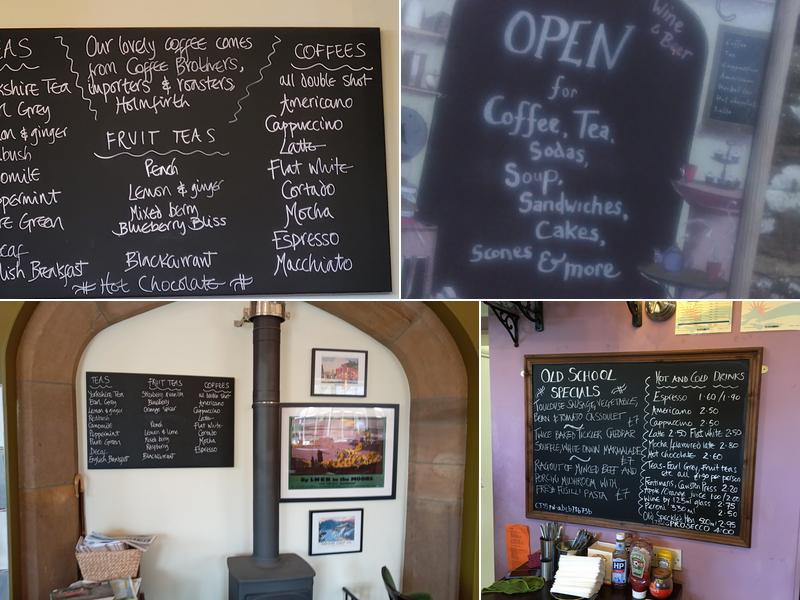 EAS
kshire Tea
rl Grey
on & ginger
bush
omile
ppermint
re Green
ecaf
lish Breakfast
Our lovely coffee comes
from Coffee Brothers,
importers & roasters,
Holmfirth
FRUIT TEAS
Peach
Lemon & ginger
Mixed berry
Blueberry Bliss
Blackcurrant
Hot Chocolate
COFFEES
all double shot
Americano
Cappuccino
Latte
Flat white
Cortado
Mocha
Espresso
Macchiato
Wine
& Beer
OPEN
for
Coffee, Tea,
Sodas,
Soup,
Sandwiches,
Cakes,
Scones & more
TEAS
Yorkshire Tea
Earl Grey
Lemon & ginger
Redbush
Camomile
Peppermint
Pure Green
Decaf
English Breakfast
FRUIT TEAS
Blueberry
Peach
Lemon & Lime
Mixed berry
Raspberry
Blackcurrant
COFFEES
all double shot
Americano
Cappuccino
Latte
Flat white
Cortado
Mocha
Espresso
By LNER to the MOORS
OLD SCHOOL
SPECIALS
TOULOUSE SAUSAGE, VEGETABLE,
BEAN & TOMATO CASSOULET £7
TWICE BAKED TICKLER CHEDDAR
SOUFFLE, WHITE ONION MARMALADE
£7
RAGOUT OF MINCED BEEF AND
PORCINI MUSHROOM WITH
FRESH FUSILLI PASTA £7
HOT AND COLD DRINKS
Espresso 1.60/1.90
Americano 2.50
Cappuccino 2.50
Latte 2.50 Flat white 2.50
Mocha flavoured latte 2.80
Hot chocolate 2.60
Teas - Earl Grey, Fruit teas
etc all £1.90 per person
Fentimans, Cawston Press 2.20
Apple/Orange juice 1.00/2.00
Wine by 125ml glass 2.75
Peroni 330ml 2.50
Old Speckled Hen 500ml 2.95
PROSECCO 4.00
HP